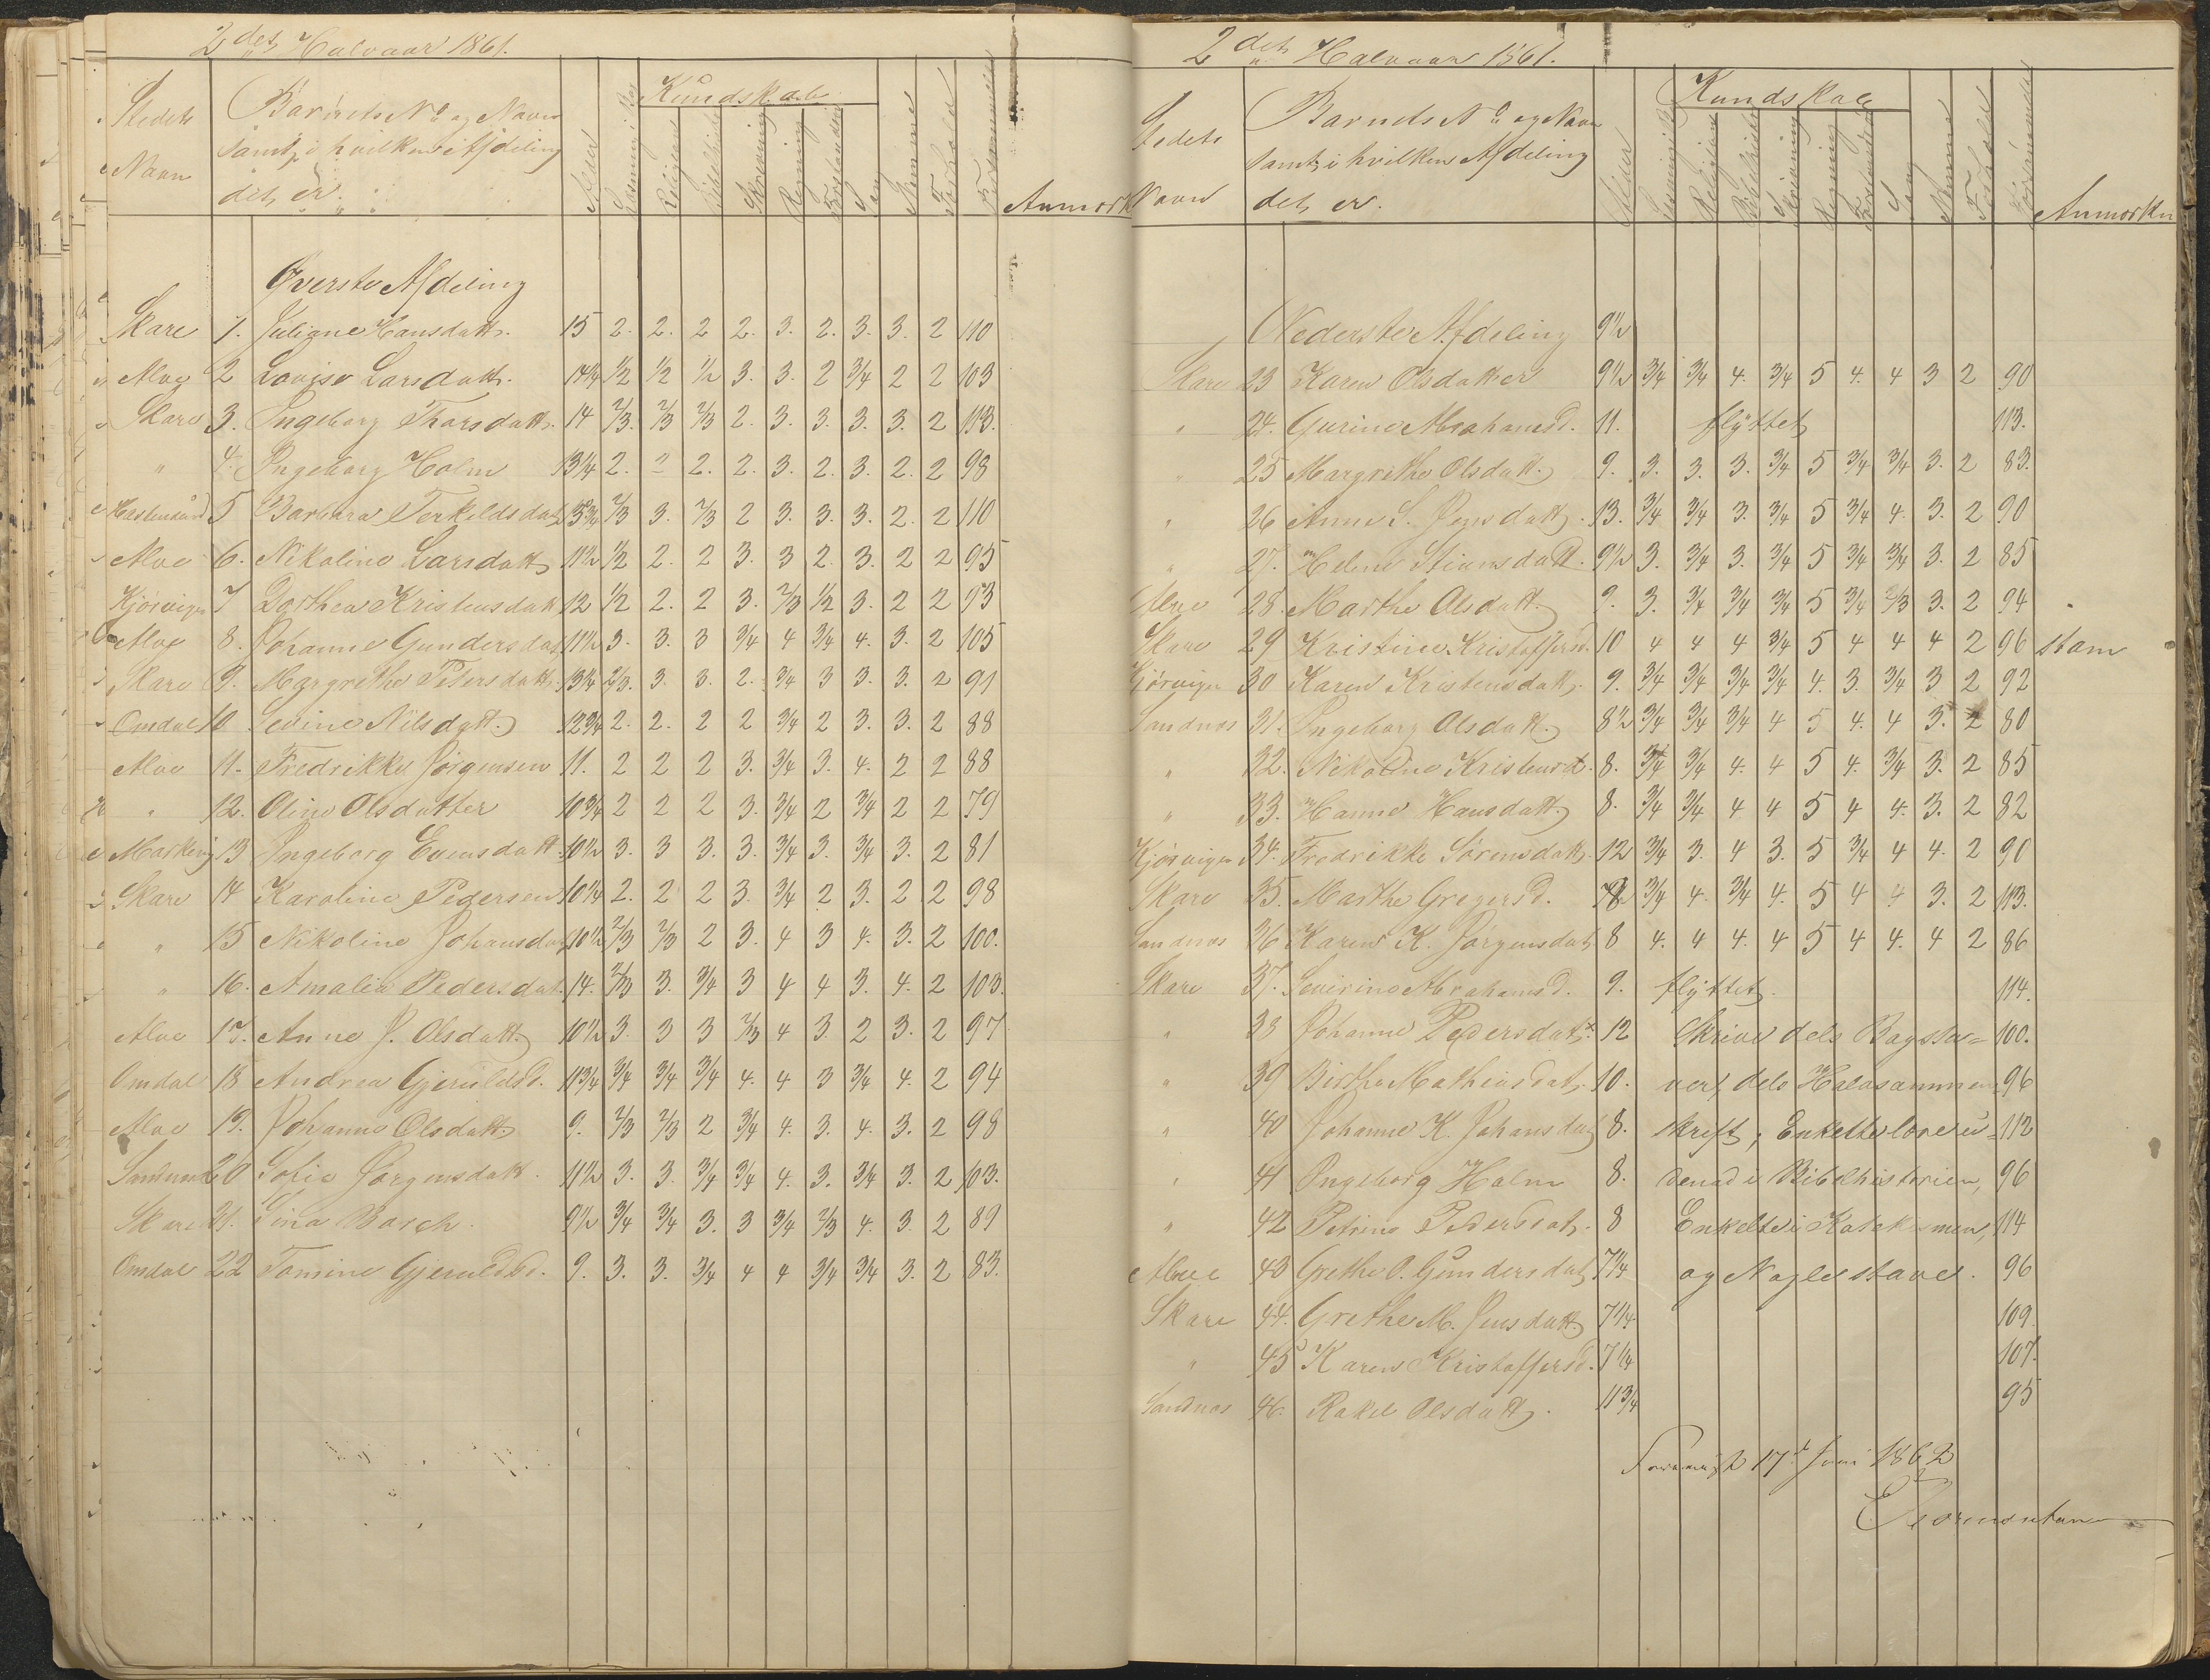 2det Halvaar 1861.
Stedets Navn
Barnets No og Navn samt i hvilken Afdeling det er.
Alder
Læsning i Bog
Kundskab
Religion
Bibelhistorie
Skrivning
Regning
Forstandsø
Sang
Nemme
Forhold
Forsømmelser
Anmærkn
Øverste Afdeling
Skare 1. Juliane Hansdatt. 15 2. 2. 2 2. 3. 2. 3. 3. 2 110
Aloe 2 Lovise Larsdatt. 14 1/4 1/2 1/2 1/2 3. 3. 2 3/4 2 2 103
Skare 3. Ingeborg Thorsdatt. 14 2/3. 2/3 2/3 2. 3. 3. 3. 3. 2 113.
" 4. Ingeborg Holm 13 1/4 2. 2 2. 2. 3. 2. 3. 2. 2 98
5 Barbara Terkeldsdatt 13 3/4 2/3 3. 2/3 2 3. 3. 3. 2. 2 110
Aloe 6. Nikoline Larsdatt 11 1/2 1/2 2. 2 3. 3 2. 3. 2 2 95
Kjørvigen 7 Dorthea Kristensdatt 12 1/2 2. 2 3. 2/3 1/2 3. 2 2 93
Aloe 8. Johanne Gundersdatt 11 1/2 3. 3. 3 3/4 4 3/4 4. 3. 2 105
Skare 9. Margrethe Petersdatt. 13 1/4 2/3. 3. 3. 2. 3/4 3 3. 3. 2 91
Omdal 10 Sevine Nilsdatt. 12 3/4 2. 2. 2 2 3/4 2 3. 3. 2 88
Aloe 11. Fredrikke Jørgensen 11. 2 2 2 3. 3/4 3. 4. 2 2 88
" 12. Oline Olsdatter 10 3/4 2 2 2 3. 3/4 2 3/4 2 2 79
13 Ingeborg Evensdatt 10 1/2 3. 3 3. 3. 3/4 3. 3/4 3. 2 81
Skare 14 Karoline Pedersen 10 1/4 2. 2 2 3. 3/4 2 3. 2 2 98
" 15 Nikoline Johansdatt 10 1/2 2/3 2/3 2 3. 4 3 4. 3. 2 100.
" 16. Amalia Pedersdat. 14. 2/3 3. 3/4 3 4 4 3. 4. 2 103.
Aloe 17. Anne J. Olsdatt. 10 1/2 3. 3 3 2/3 4 3 2 3. 2 97
Omdal 18 Andrea Gjeruldsd. 11 3/4 3/4 3/4 3/4 4. 4 3 3/4 4. 2 94
Aloe 19. Johanne Olsdatt 9. 2/3 2/3 2 3/4 4. 3. 4. 3. 2 98
20 Sofie Jørgensdatt. 11 1/2 3. 3. 3/4 3/4 4. 3. 3/4 3. 2 103.
Skare 21. Sina Borch. 9 1/2 3/4 3/4 3. 3 3/4 2/3 4. 3. 2 89
Omdal 22 Tomine Gjeruldsd. 9. 3. 3. 3/4 4 4 3/4 3/4 3. 2 83.
2det Halvaar 1861.
Stedets Navn
Barnets No og Navn samt i hvilken Afdeling det er.
Alder
Læsning i Bog
Kundskab
Religion
Bibelhistorie
Skrivning
Regning
Sang
Nemme
Forhold
Forsømmelser
Anmærkn
Nederste Afdeling 9 1/2
Skare 23 Karen Olsdatter 9 1/2 3/4 3/4 4. 3/4 5 4. 4 3 2 90
" 24. Gurine Abrahamsd. 11. flyttet 113.
" 25 Margrethe Olsdatt. 9. 3. 3. 3. 3/4 5 3/4 3/4 3. 2 83.
" 26 Anne S. Jensdatt. 13. 3/4 3/4 3. 3/4 5 3/4 4. 3. 2 90
" 27. Helene Stiansdatt. 9 1/2 3. 3/4 3. 3/4 5 3/4 3/4 3. 2 85
Aloe 28. Marthe Olsdatt. 9. 3. 3/4 3/4 3/4 5 3/4 2/3 3. 2 94
Skare 29 Kristine Kristoffersd. 10 4 4 4 3/4 5 4 4 4 2 96 stam
Kjørvigen 30 Karen Kristensdatt. 9. 3/4 3/4 3/4 3/4 4. 3. 3/4 3 2 92
Sandnes 31. Ingeborg Olsdatt. 8 1/2 3/4 3/4 3/4 4 5 4. 4 3. 2 80
" 32. Nikoline Kristensd. 8. 3/4 3/4 4. 4 5 4. 3/4 3. 2 85
" 33. Hanne Hansdatt. 8. 3/4 3/4 4 4 5 4 4. 3. 2 82
Kjørvigen 34. Fredrikke Sørensdatt. 12 3/4 3. 4 3. 5 3/4 4 4. 2 90
Skare 35. Marthe Gregersd. 3/4 4. 3/4 4. 5 4 4 3. 2 113.
Sandnes 36 Karen K. Jørgensdatt 8 4. 4 4. 4 5 4 4. 4 2 86
Skare 37. Severine Abrahamsd. 9. flyttet. 114.
" 38 Johanne Pedersdatt. 12 Skriver dels Bogsta= 100.
" 39 Birthe Mathiasdat. 10. ver, dels Halvsammen= 96
" 40 Johanne K. Johansdatt 8. skrift; Enkelte lære u= 112
" 41 Ingeborg Holm 8. denad i Bibelhistorien, 96
" 42 Petrine Pedersdat. 8 Enkelte i Katekismen, 114
Aloe 43 Grethe O. Gundersdatt 7 1/4 og Nogle stave. 96
Skare 44. Grethe M. Jensdatt. 7 1/4 109.
" 45 Karen Kristoffersd. 7 1/4 107.
Sandnes 46. Rakel Olsdatt. 11 3/4 95
17d Juni 1862